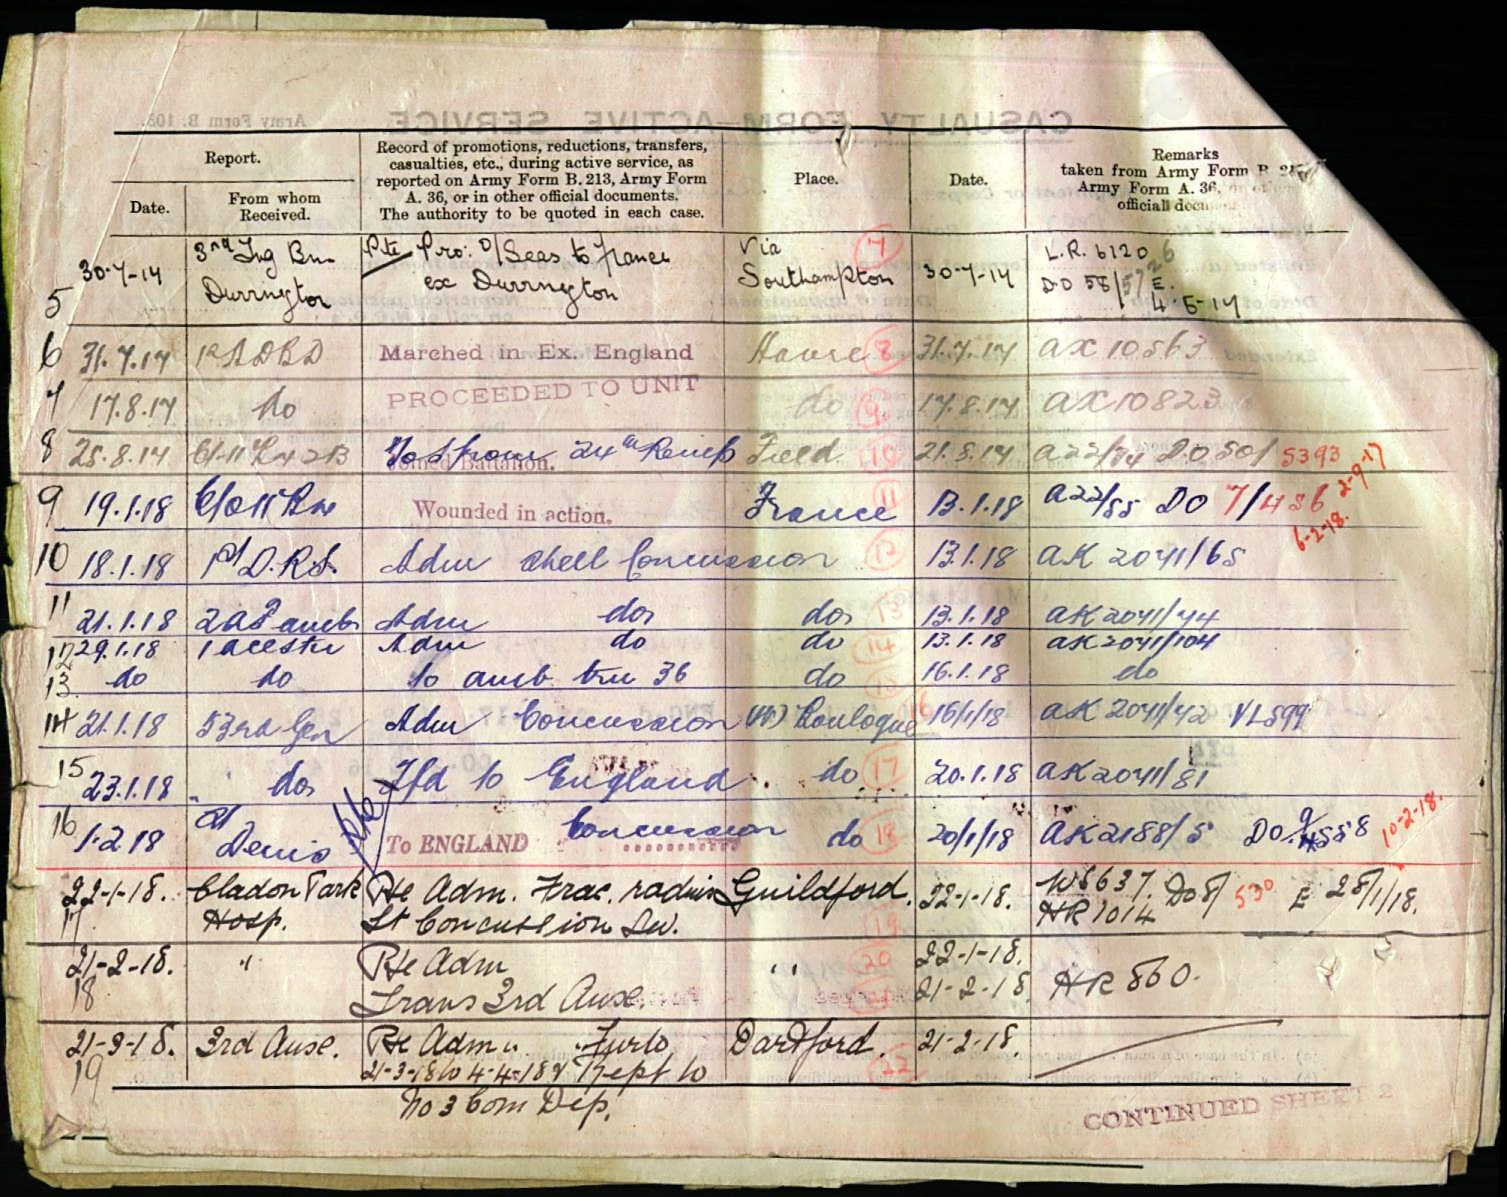 CASUALTY FORM—ACTIVE SERVICE.
Army Form B. 103.
Report.
Date.
From whom
Received.
Record of promotions, reductions, transfers,
casualties, etc., during active service, as
reported on Army Form B. 213, Army Form
A. 36, or in other official documents.
The authority to be quoted in each case.
Place.
Date.
Remarks
taken from Army Form B.
Army Form A. 36,
official
5 30-7-17 3rd Trg Bn Durrington Pte Pro: O/Seas to France ex Durrington via Southampton 7 30-7-17 L.R. 6120 DO 58/
6 31.7.17 Marched in Ex. England Havre 8 31.7.17 AX 10563
7 17.8.17 do PROCEEDED TO UNIT do 9 17.8.17 AX 10823
8 25.8.17 Joined Battalion. 24th Reinfs Field 10 21.8.17 A22/74 DO 50/5393 2-9-17
9 19.1.18 Wounded in action. France 11 13.1.18 A22/85 DO 7/456 6-2-18.
10 18.1.18 1st D.R.S. Adm Shell Concussion 12 13.1.18 AK 2041/65
11 21.1.18 Adm do do 13 13.1.18 AK 2041/44
12 29.1.18 Adm do do 14 13.1.18 AK 2041/104
13 do do to amb trn 36 do 16.1.18 do
14 21.1.18 53rd Gen Adm Concussion (W) Boulogne 16 16/1/18 AK 2041/42 VL599
15 23.1.18 do Tfd to England do 17 20.1.18 AK 2041/81
16 1.2.18 St Denis To ENGLAND Concussion do 18 20/1/18 AK 2188/5 DO 9/558 10-2-18.
17 22-1-18. Cladon Park Hosp. Pte Adm. Frac. radius Lt Concussion Sev. Guildford. 19 22-1-18. W5637. HR 1014 DO 8/530 E 28/1/18.
18 21-2-18. " Pte Adm Trans 3rd Auxl. " 20 22-1-18. 21-2-18. HR 860.
19 21-3-18. 3rd Auxl. Pte Adm.. Furlo 21-3-18 to 4-4-18 & rept to No 3 Com Dep. Dartford. 22 21-2-18.
CONTINUED SHEET 2